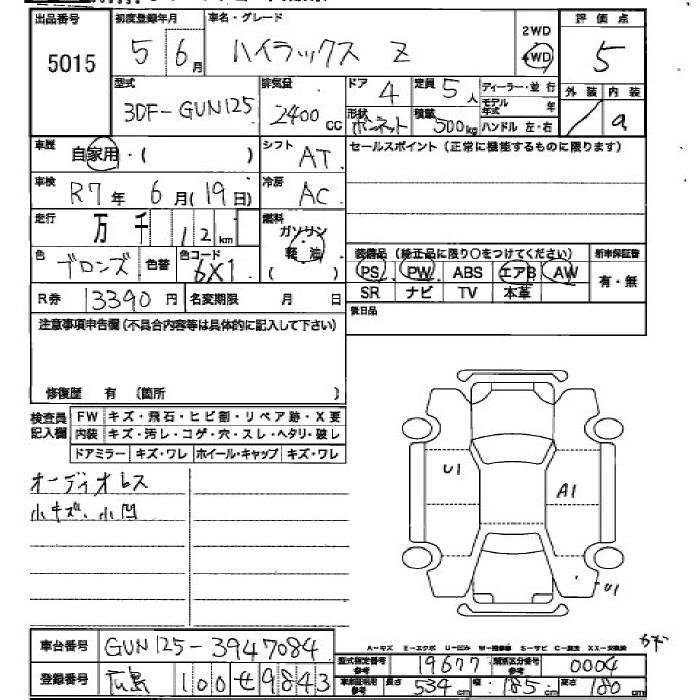 出品番号 初度登録年月 車名・グレード 2WD 評価点
5015 5 6月 ハイラックス Z 4WD 5
型式 排気量 ドア 4 定員 5人 ディーラー・並行 外装 内装
3DF-GUN125 2400cc 形状 ボンネット 積載 500kg モデル年式 年 a
ハンドル 左・右
車歴 自家用・( ) シフト AT セールスポイント(正常に機能するものに限ります)
車検 R7年 6月(19日) 冷房 AC
走行 万 千 12km 燃料 ガソリン 軽油 ( )
色 ブロンズ 色替 色コード 6X1
装備品(純正品に限り○をつけてください) 新車保証書
PS PW ABS エアB AW 有・無
SR ナビ TV 本革
R券 13390円 名変期限 月 日 後日品
注意事項申告欄(不具合内容等は具体的に記入して下さい)
修復歴 有 (箇所 )
検査員記入欄 FW キズ・飛石・ヒビ割・リペア跡・X要
内装 キズ・汚レ・コゲ・穴・スレ・ヘタリ・破レ
ドアミラー キズ・ワレ ホイール・キャップ キズ・ワレ
オーディオレス
小キズ、小凹
U1
A1
U1
車台番号 GUN125-3947084
登録番号 広島 100せ9843
A-キズ E-エクボ U-凹み W-補修跡 S-サビ C-腐食 XX-交換済
型式指定番号 参考 19677 類別区分番号 参考 0004
参考 長さ 534cm 幅 185cm 高さ 180cm